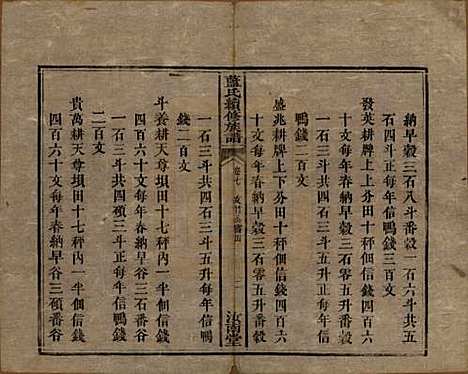 納早穀三石八斗番穀一石六斗共五
石四斗正每年信鴨錢三百文
發英耕牌上田十秤個信錢四百六
十文每年春納早穀三石零五升番穀
一石三斗共四石三斗五升正每年信
鴨錢二百文
盛兆耕牌上下分田十秤個信錢四百六
十文每年春納早穀三石零五升番穀
藍氏續修族譜
卷七
汝南堂
一石三斗共四石三斗五升每年信鴨
錢二百文
斗養耕天尊壠田十七秤內一半個信錢
四百六十文每年春納早谷三碩番谷
一石三斗共四碩三斗正每年信鴨錢
二百文
貴萬耕天尊壠田十七秤內一半個信錢
四百六十文每年春納早谷三碩番谷